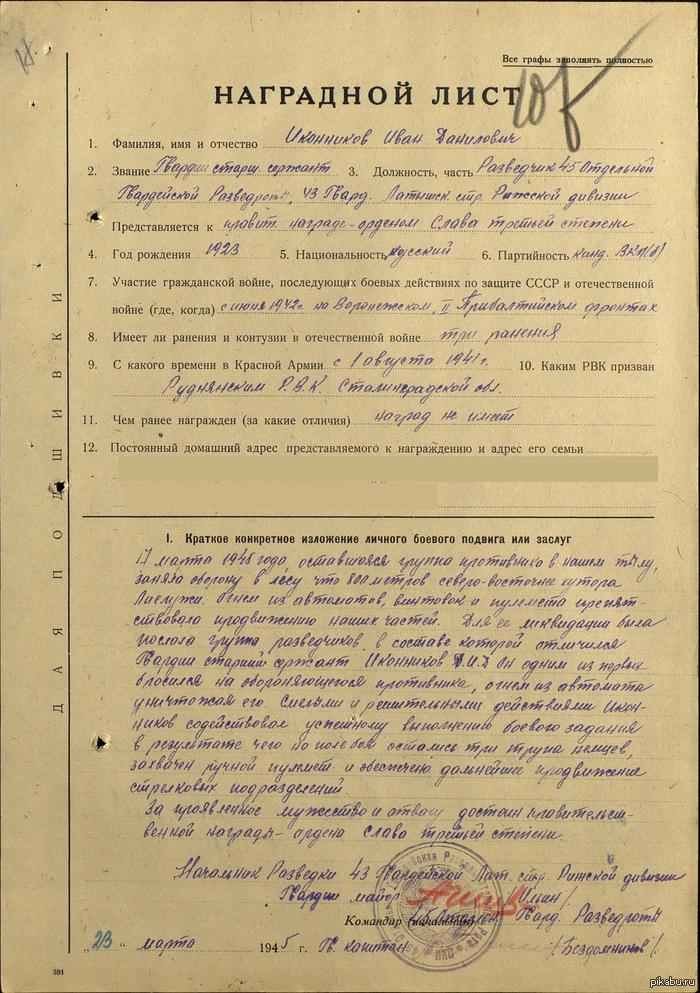 Все графы заполнять полностью
НАГРАДНОЙ ЛИСТ
1. Фамилия, имя и отчество Иконников Иван Данилович
2. Звание Гвардии старш. сержант 3. Должность, часть Разведчик 45 Отдельной
Гвардейской Разведроты, 43 Гвард. Латышск. стр. Рижской дивизии
Представляется к правит. награде-орденом Слава третьей степени
4. Год рождения 1923 5. Национальность русский 6. Партийность канд. ВКП(б)
7. Участие гражданской войне, последующих боевых действиях по защите СССР и отечественной
войне (где, когда) с июня 1942г. на Воронежском, II Прибалтийском фронтах
8. Имеет ли ранения и контузии в отечественной войне три ранения
9. С какого времени в Красной Армии с 1 августа 1941г. 10. Каким РВК призван
Руднянским Р.В.К. Сталинградской обл.
11. Чем ранее награжден (за какие отличия) наград не имеет
12. Постоянный домашний адрес представляемого к награждению и адрес его семьи
ДАЯ ПОДШИВКИ
I. Краткое конкретное изложение личного боевого подвига или заслуг
17 марта 1945 года, оставшаяся группа противника в нашем тылу,
заняла оборону в лесу что 800 метров северо-восточнее хутора
огнем из автоматов, винтовок и пулемета препят-
ствовала продвижению наших частей. Для ее ликвидации была
послана группа разведчиков, в составе которой отличился
Гвардии старший сержант Иконников Он одним из первых
бросился на обороняющегося противника, огнем из автомата
уничтожая его. Смелыми и решительными действиями Икон-
ников содействовал успешному выполнению боевого задания
в результате чего на поле боя остались три трупа немцев,
захвачен ручной пулемет и обеспечено дальнейшее продвижение
стрелковых подразделений.
За проявленное мужество и отвагу достоин правительст-
венной награды- ордена Слава третьей степени.
Начальник Разведки 43 Гвардейской Лат. стр. Рижской дивизии
Гвардии майор /Ильин/
Командир (начальник) 45 Отдельн Гвард. Разведроты
"23" марта 1945 г. Гв. капитан /Бездомников/
591
pikabu.ru